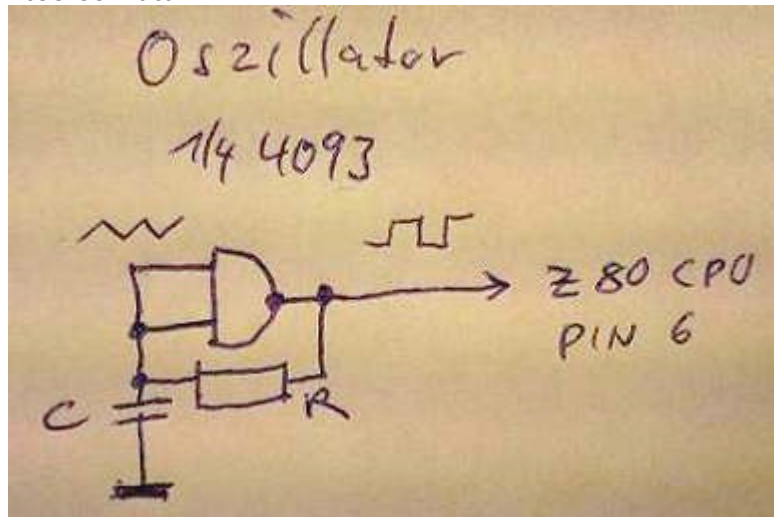 Oszillator
1/4 4093
Z80 CPU
PIN 6
C
R